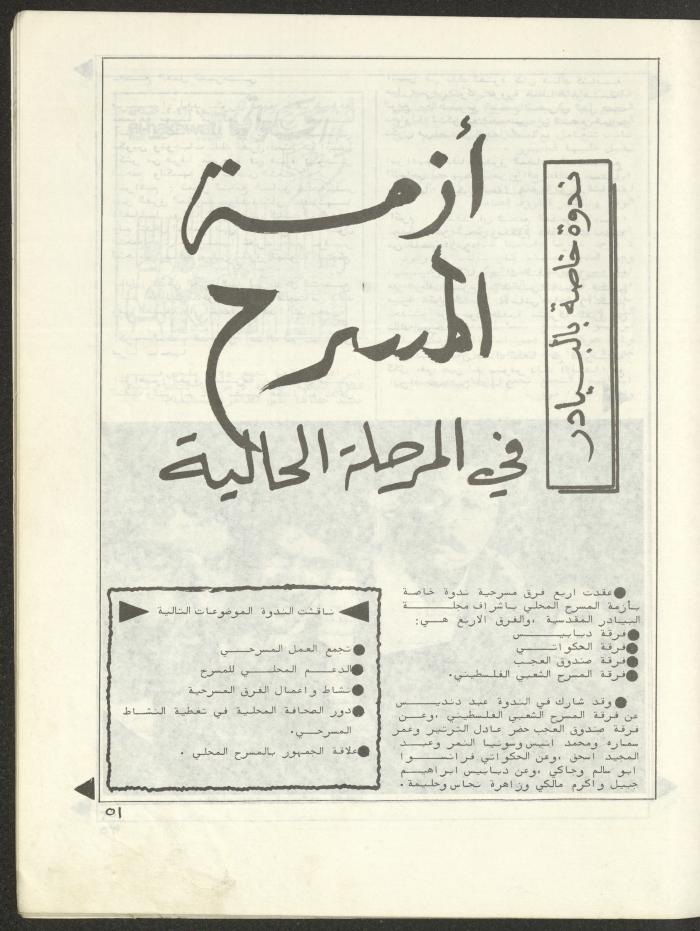 ندوة خاصة بالبيادر
أزمة
المسرح
في المرحلة الحالية
●عقدت اربع فرق مسرحية ندوة خاصة
بأزمة المسرح المحلي باشراف مجلة
البيادر المقدسية ،والفرق الاربع هي:
●فرقة دبابيس
●فرقة الحكواتي
●فرقة صندوق العجب
●فرقة المسرح الشعبي الفلسطيني.
● وقد شارك في الندوة عبد دنديس
عن فرقة المسرح الشعبي الفلسطيني ،وعن
فرقة صندوق العجب حضر عادل الترتير وعمر
سماره ومحمد انيس وسونيا النمر وعبد
المجيد اسحق ،وعن الحكواتي فرانسوا
ابو سالم وجاكي ،وعن دبابيس ابراهيم
جبيل واكرم مالكي وزاهرة نحاس وحليمة.
ناقشت الندوة الموضوعات التالية
●تجمع العمل المسرحي
●الدعم المحلي للمسرح
●نشاط واعمال الفرق المسرحية
●دور الصحافة المحلية في تغطية النشاط
المسرحي.
●علاقة الجمهور بالمسرح المحلي .
٥١